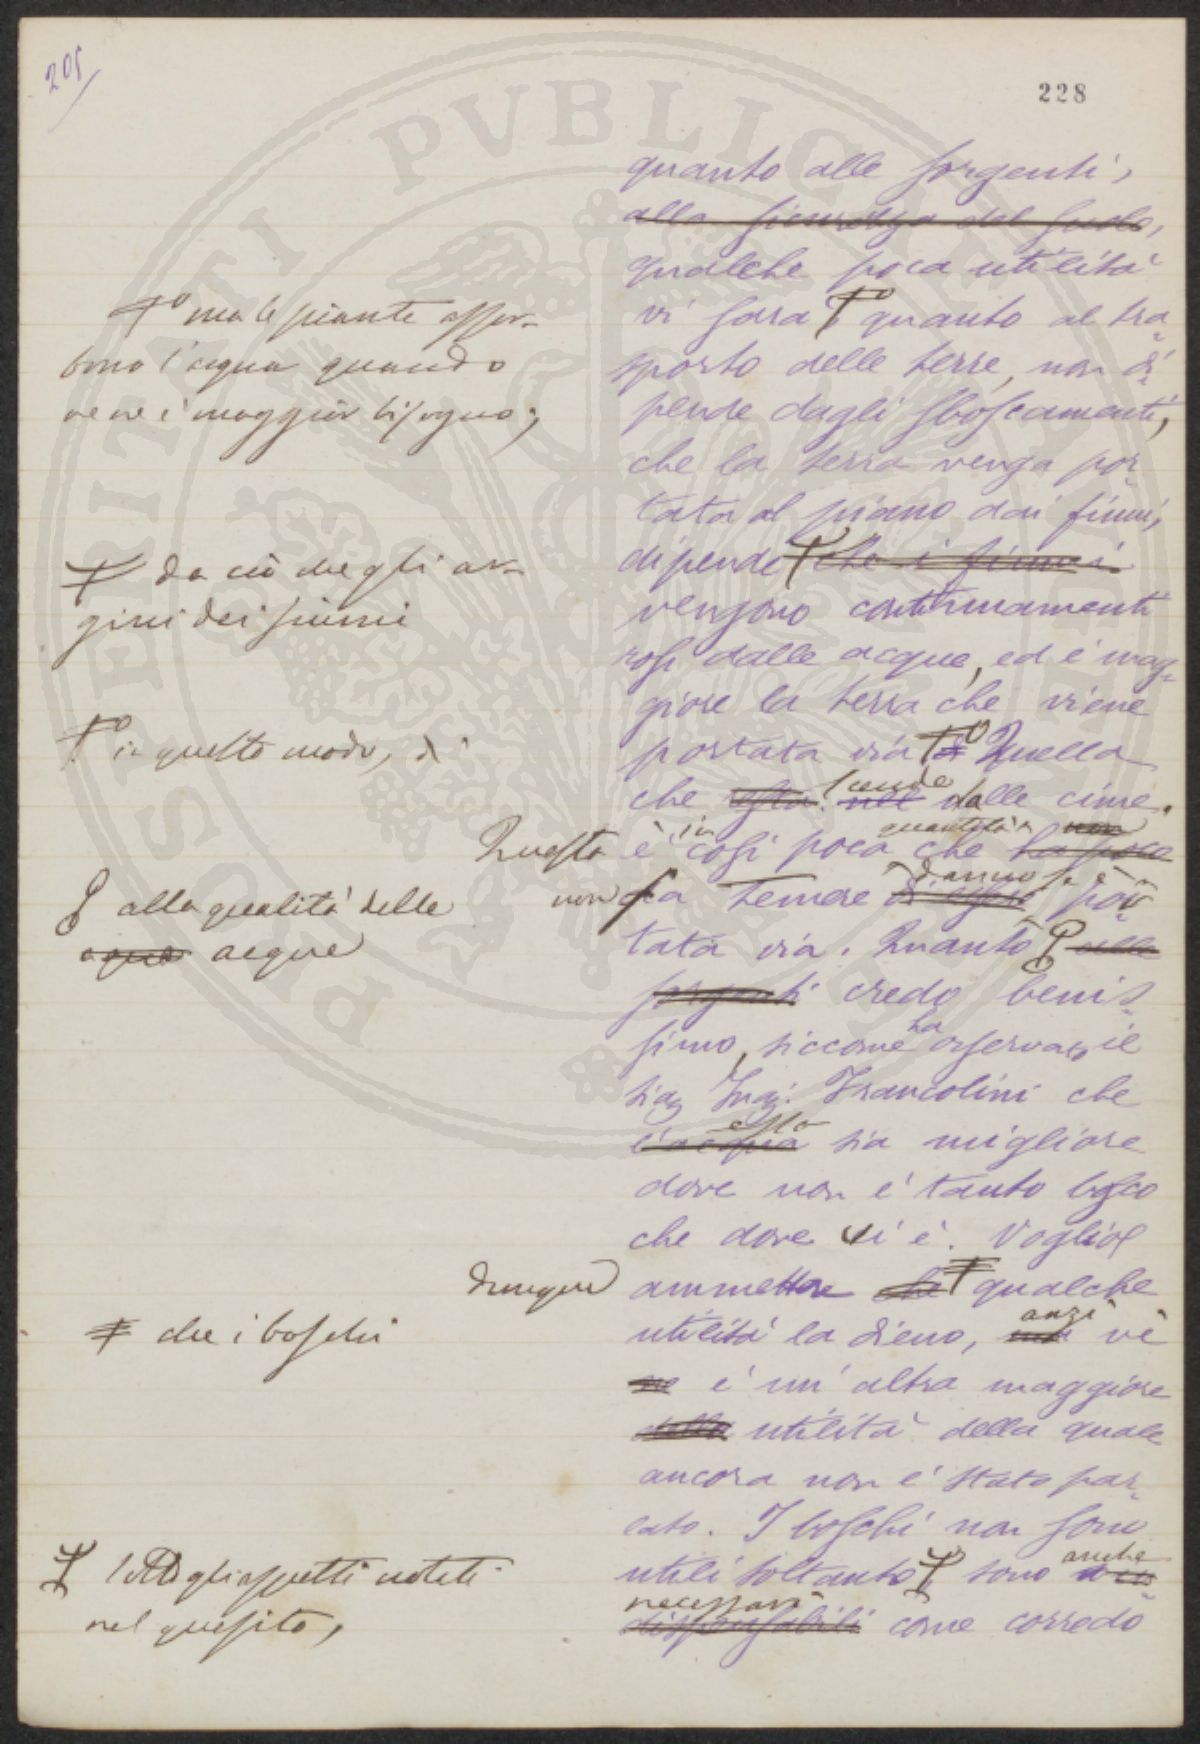 205
228
quanto alle sorgenti,
alla sicurezza del suolo,
qualche poca utilità
vi sarà quanto al tra-
sporto delle terre, non di-
pende dagli sboscamenti,
che la terra venga por-
tata al piano dai fiumi,
dipende che i fiumi
vengono continuamente
rosi dalle acque, ed è mag-
giore la terra che viene
portata via di Quella
che resta nel scende dalle cime.
Questa è in così poca quantità che non ha poca
non fa temere danno se è di essere por-
tata via. Quanto alle
sorgenti credo benis-
simo, siccome ha osservato il
sig. Ing. Francolini che
l'acqua essa sia migliore
dove non è tanto bosco
che dove vi è. Voglio
dunque ammettere che qualche
utilità la dieno, ma anzi vè
ne è un'altra maggiore
della utilità della quale
ancora non è stato par-
lato. I boschi non sono
utili soltanto sono anche in-
dispensabili necessari come corredo
ma le piante assor-
bono l'acqua quando
ve ne è maggior bisogno;
da ciò che gli ar-
gini dei fiumi
in questo modo, di
alla qualità delle
acque acque
che i boschi
sotto gli aspetti notati
nel quesito,
PROSPERITATI PVBLICAE